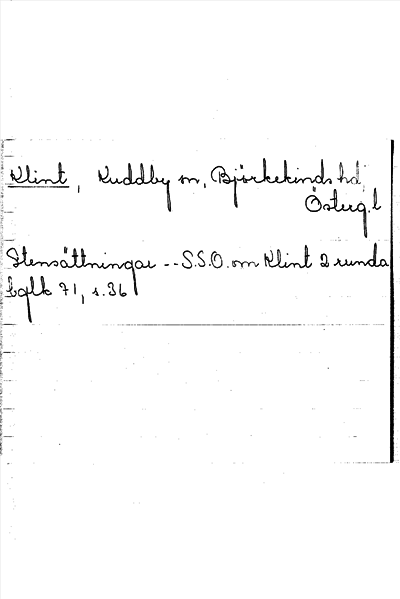 Klint, Kuddby sn, Björkekinds hd,
Österg. l
Stensättningar -- S.S.O. om Klint 2 runda
bglb 71, s. 36